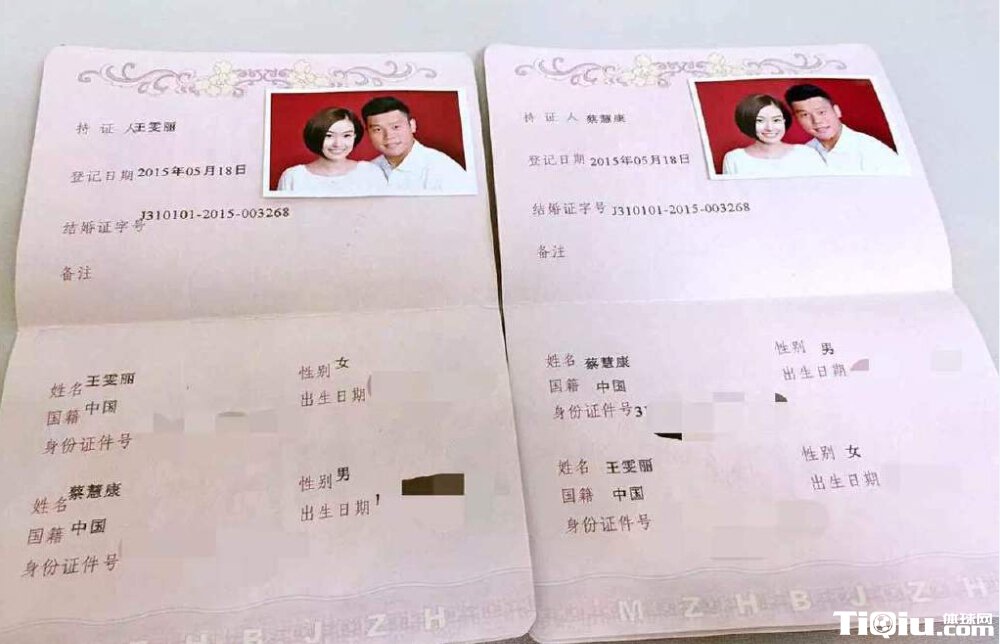 持证人王雯丽
登记日期 2015年05月18日
结婚证字号 J310101-2015-003268
备注
姓名 王雯丽 性别 女
国籍 中国 出生日期
身份证件号
姓名 蔡慧康 性别 男
国籍 中国 出生日期
身份证件号
持证人 蔡慧康
登记日期 2015年05月18日
结婚证字号 J310101-2015-003268
备注
姓名 蔡慧康 性别 男
国籍 中国 出生日期
身份证件号 3
姓名 王雯丽 性别 女
国籍 中国 出生日期
身份证件号
HBJZH
MZHBJZH
TiQiu体球网.com